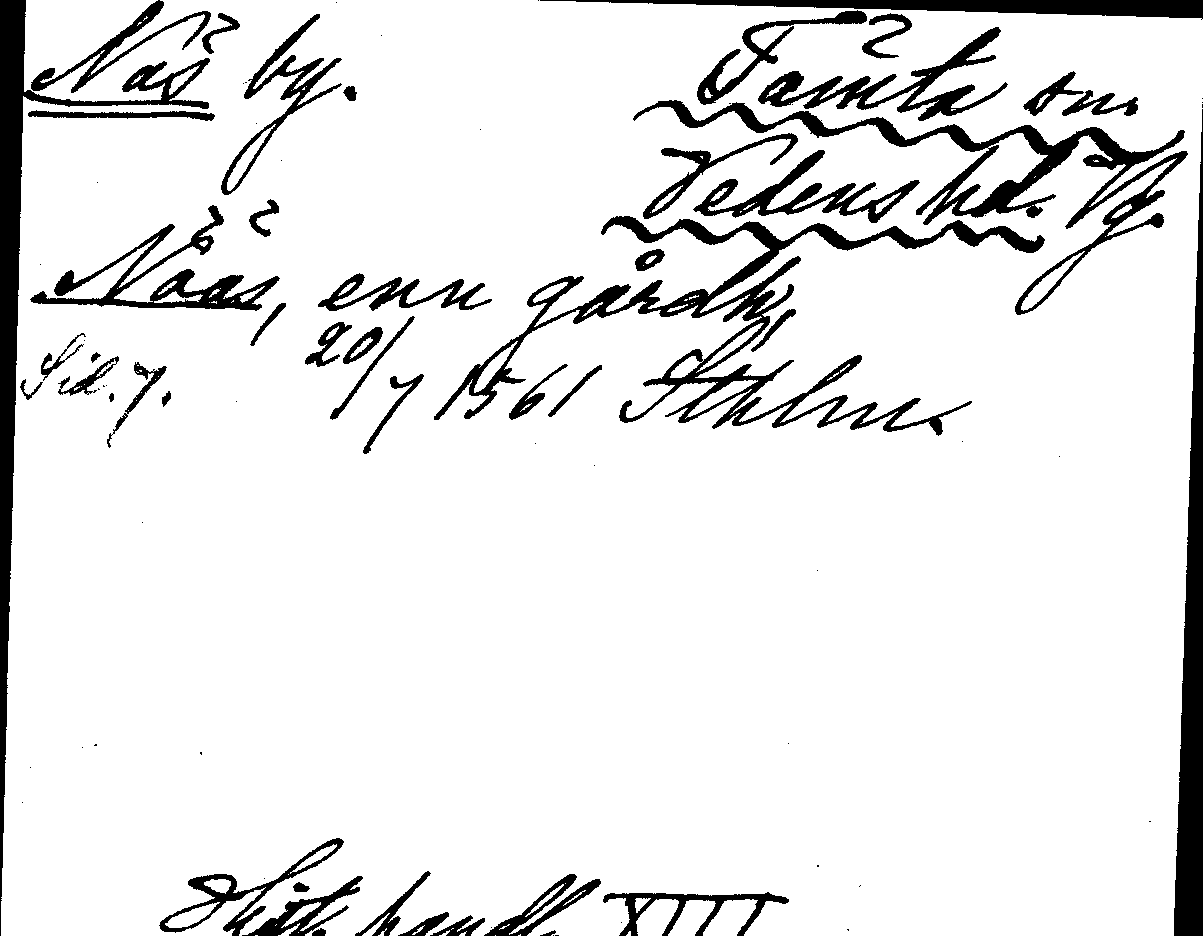 Näs by. Tämta sn.
Vedens hd. Vg.
Nääs, enn gårdh,
Sid. 7. 20/7 1561 Sthlm.
Hist. handl. XIII